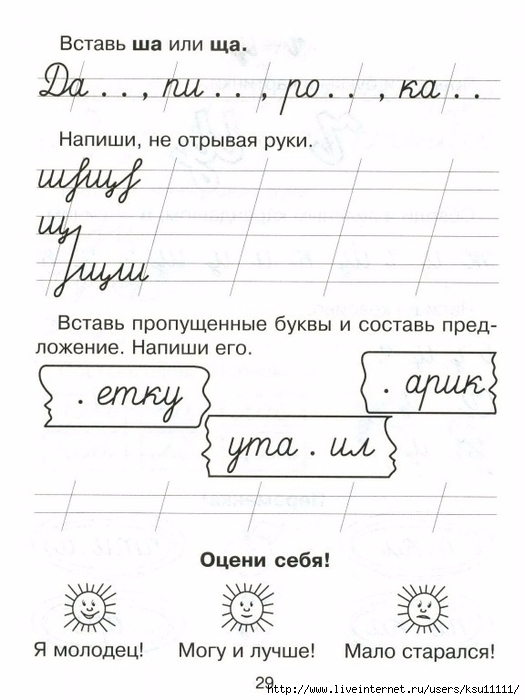 Вставь ша или ща.
Да . . , пи . . , ро . . , ка . .
Напиши, не отрывая руки.
щ
щили
Вставь пропущенные буквы и составь пред-
ложение. Напиши его.
. етку
. арик
ута . ил
Оцени себя!
Я молодец! Могу и лучше! Мало старался!
29
http://www.liveinternet.ru/users/ksu11111/